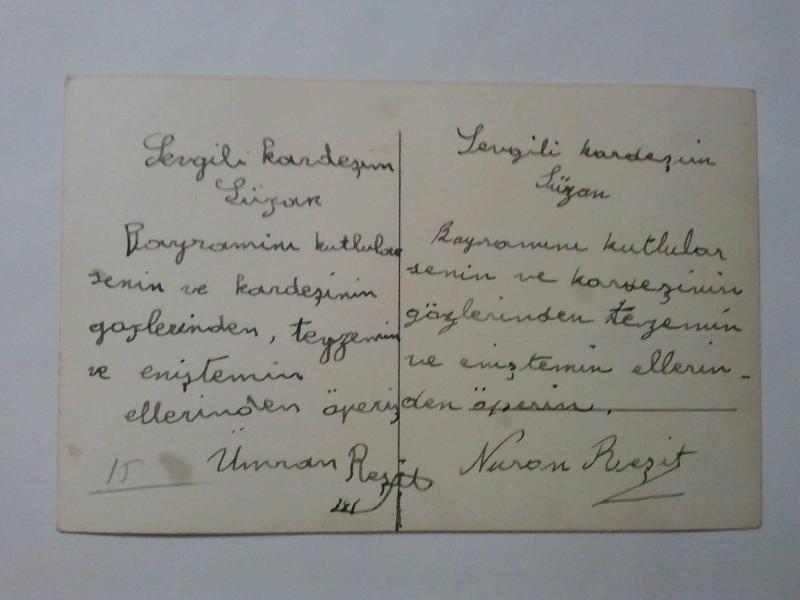 Sevgili kardeşim
Süzan
Bayramını kutlular
senin ve kardeşinin
gözlerinden, teyzemin
ve eniştemin
ellerinden öperiz
Ümran Reşit
15
Sevgili kardeşim
Süzan
Bayramını kutlular
senin ve kardeşinin
gözlerinden tezemin
ve eniştemin ellerin-
den öperim.
Nuran Reşit